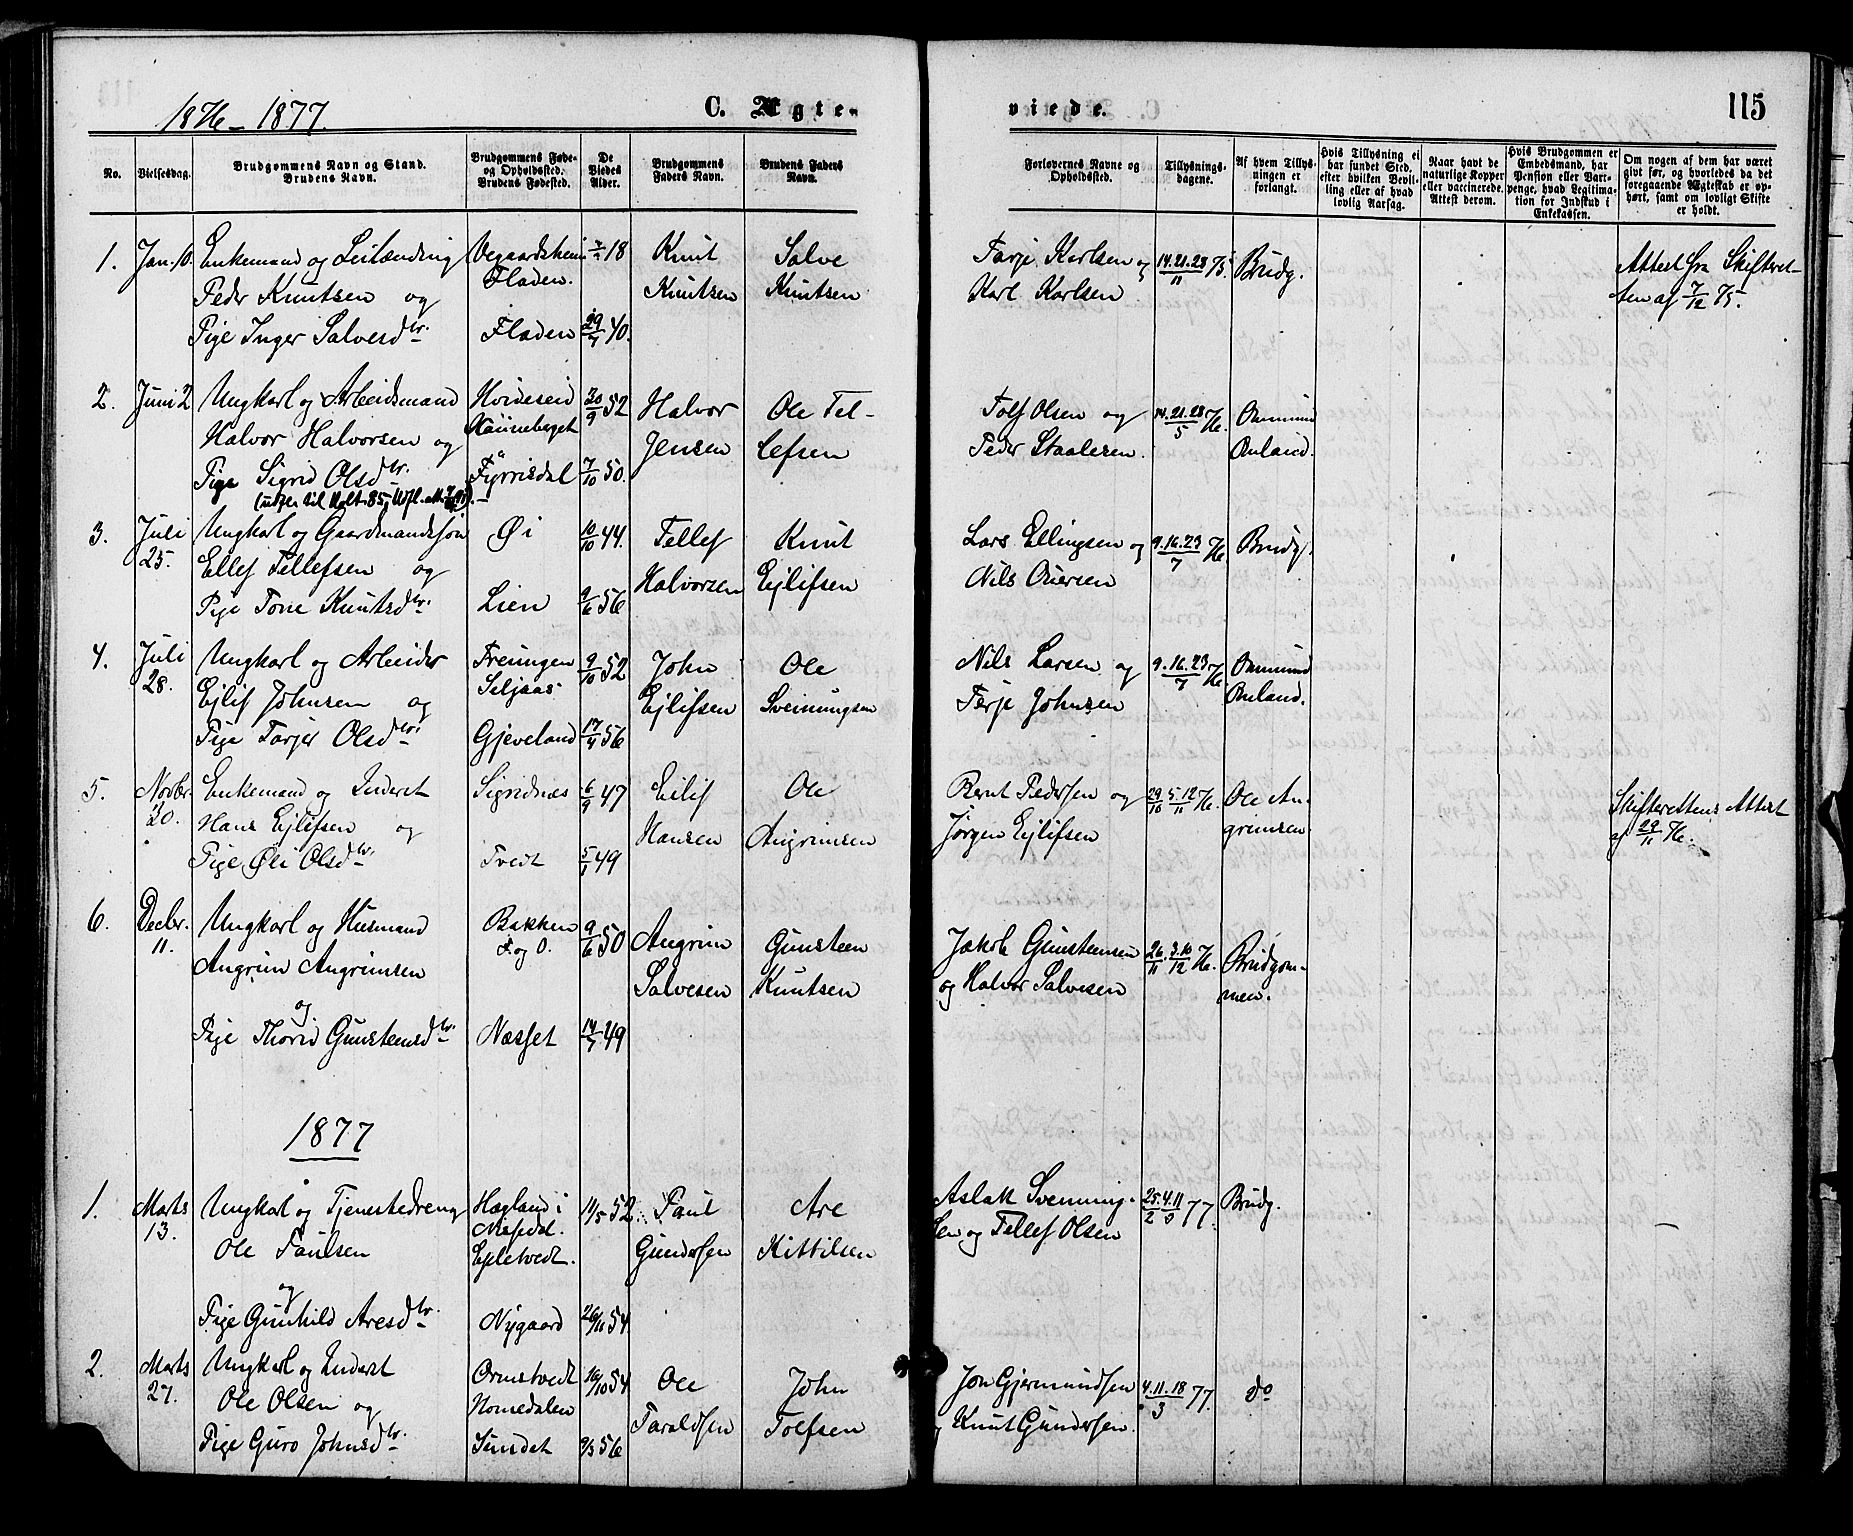 1876-1877.
C. Ægte-
viede.
115
No.
Vielsesdag.
Brudgommens Navn og Stand.
Brudens Navn.
Brudgommens Føde-
og Opholdssted.
Brudens Fødested.
De
Viedes
Alder.
Brudgommens
Faders Navn.
Brudens Faders
Navn.
Forlovernes Navne og
Opholdssted.
Tillysnings-
dagene.
Af hvem Tillys-
ningen er
forlangt.
Hvis Tillysning ei
har fundet Sted,
efter hvilken Bevil-
ling eller af hvad
lovlig Aarsag.
Naar havt de
naturlige Kopper
eller vaccinerede.
Attest derom.
Hvis Brudgommen er
Embedsmand, har
Pension eller Vart-
penge, hvad Legitima-
tion for Indskud i
Enkekassen.
Om nogen af dem har været
givt før, og hvorledes da det
foregaaende Ægteskab er op-
hørt, samt om lovligt Skifte
er holdt.
1. Jan. 10. Enkemand og Leilænding Vegaardsheim 18 Knut Salve Tarje Karlsen og 14.21.28/11 75 Brudg. Attest fra Skifteret-
Peder Knutsen og Fladen. Knutsen Knutsen Karl Karlsen ten af 7/12 75.
Pige Inger Salvesdtr. Fladen 29/7 40.
2. Juni 2 Ungkarl og Arbeidsmand Hvideseid 30/9 52 Halvor Ole Tel- Tolf Olsen og 14.21.28/5 76. Ommund
Halvor Halvorsen og Jensen lefsen Peder Staalesen. Omland.
Pige Sigrid Olsdtr. Fyrrisdal 7/10 50.
3. Juli Ungkarl og Gaardmandssøn Øi 10/10 44. Tellef Knut Lars Ellingsen og 9.16.23/7 76. Brudg.
25. Ellef Tellefsen og Halvorsen Ejlifsen Nils
Pige Tone Knutsdtr. Lien 9/6 56
4. Juli Ungkarl og Arbeider Treungen 9/10 52 John Ole Nils Larsen og 9.16.23/7 76. Ommund
28. Ejlif Johnsen og Seljaas Ejlifsen Sveinungsen Terje Johnsen Omland.
Pige Tarjer Olsdtr. Gjeveland 17/4 56
5. Novbr. Enkemand og Inderst Sigridnæs 6/9 47 Eilif Ole Bernt Pedersen og 29/10 5.12/11 76. Ole An- Skifterettens Attest
20. Hans Ejlifsen og Hansen Angrimsen Jørgen Ejlifsen grimsen af 29/11 76.
Pige Øli Olsdtr. Tvedt 5/1 49
6. Decbr. Ungkarl og Husmand Bakken 9/6 50 Angrim Gunsteen Jakob Gunsteensen 26/11. 3.10/12 76. Brudgom-
11. Angrim Angrimsen F. og O. Salvesen Knutsen og Halvor Salvesen men.
og
Pige Thorid Gunsteensdtr. Næsset 14/7 49
1877
1. Marts Ungkarl og Tjenestedreng Hægland i 11/5 52 Paul Are Aslak Svenning- 25/2 4.11/3 77. Brudg.
13. Ole Paulsen Næsedal. Gundersen Kittilsen sen og Tellef Olsen
Epletvedt.
og
Pige Gunhild Aresdtr. Nygaard 26/11 54
2. Marts Ungkarl og Inderst Ormstvedt 16/10 54 Ole John Jon Gjermundsen 4.11.18/3 77. do
27. Ole Olsen og Homedalen Taraldsen Tolfsen og Knut Gundersen.
Pige Guro Johnsdtr. Sundet 9/3 56